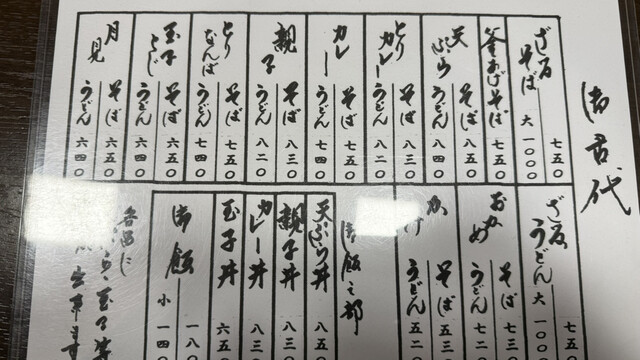 ざるそば 七五〇
大 一〇〇〇
釜あげそば 七五〇
天ぷら
そば 八五〇
うどん 八四〇
とりカレー
そば 八三〇
うどん 八二〇
カレー
そば 七五〇
うどん 七四〇
親子
そば 八三〇
うどん 八二〇
とりなんば
そば 七五〇
うどん 七四〇
玉子とじ
そば 六五〇
うどん 六四〇
月見
そば 六五〇
うどん 六四〇
ざるうどん 七五
大 一〇〇
おかめ
そば 七三
うどん 七二
かけ
そば 五三
うどん 五二
御飯之部
天ぷら丼 八五
親子丼 八三
カレー丼 八三
玉子丼 六五
御飯 一八〇
小 一四〇